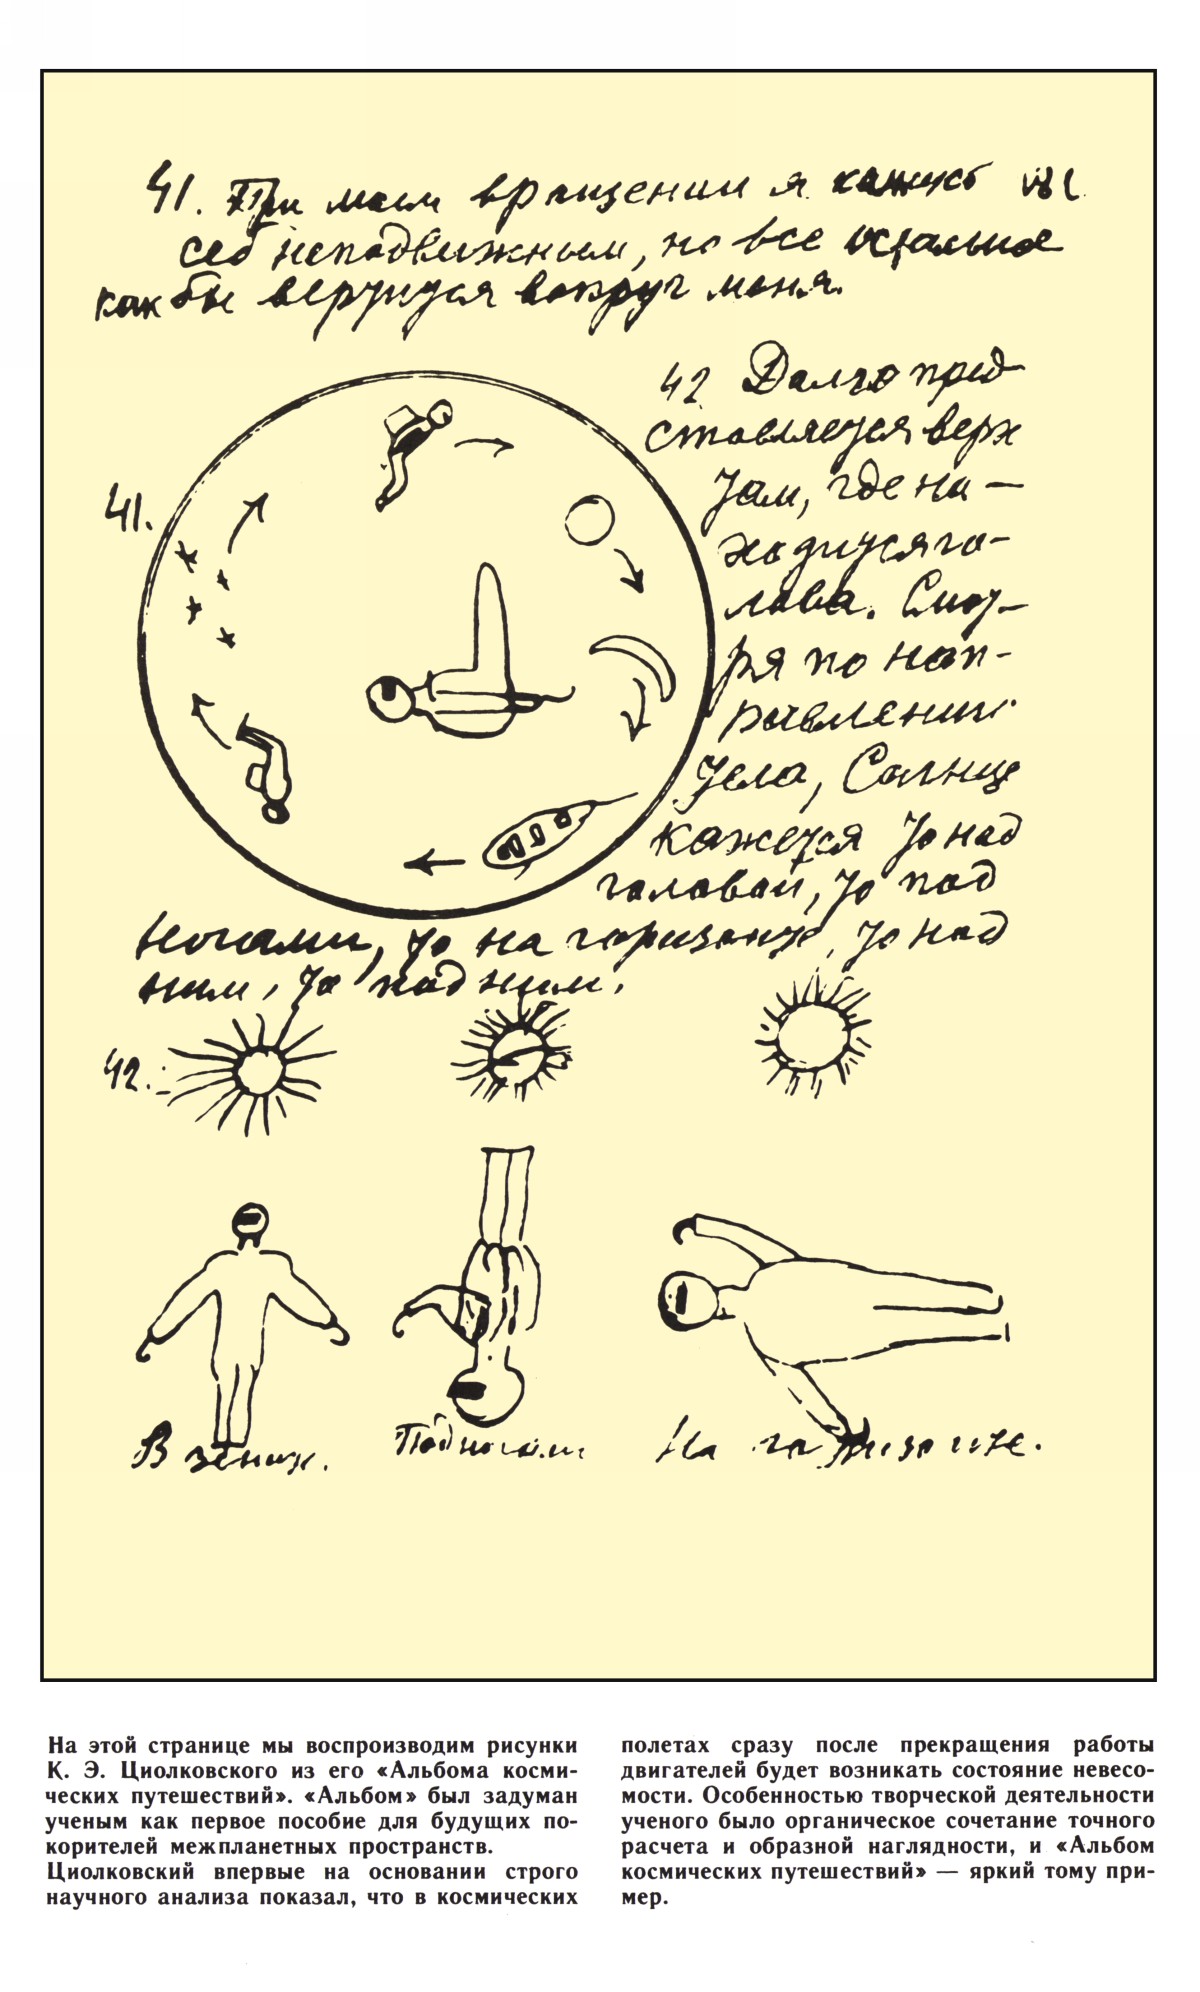 41. При моем вращении я кажусь
себе неподвижным, но все остальное
как бы вертится вокруг меня.
42 Долго пред
ставляется верх
там, где на—
ходится го-
лова. Смот-
ря по нап-
равлению
тела, Солнце
кажется то над
головой, то под
ногами, то на горизонте, то над
ним, то под ним.
41.
42.
В зените.
Под ногами
На горизонте.
На этой странице мы воспроизводим рисунки
К. Э. Циолковского из его «Альбома косми-
ческих путешествий». «Альбом» был задуман
ученым как первое пособие для будущих по-
корителей межпланетных пространств.
Циолковский впервые на основании строго
научного анализа показал, что в космических
полетах сразу после прекращения работы
двигателей будет возникать состояние невесо-
мости. Особенностью творческой деятельности
ученого было органическое сочетание точного
расчета и образной наглядности, и «Альбом
космических путешествий» — яркий тому при-
мер.